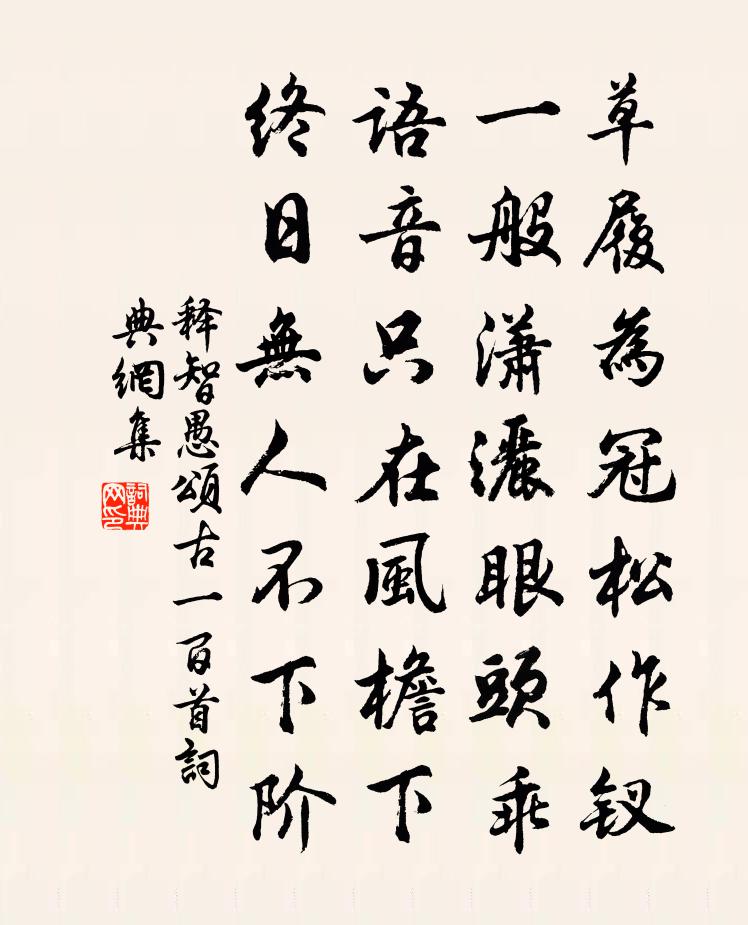 草履為冠松作钗
一般瀟灑眼頭乖
語音只在風檐下
終日無人不下阶
释智愚頌古一百首詞
典網集
詞典网印